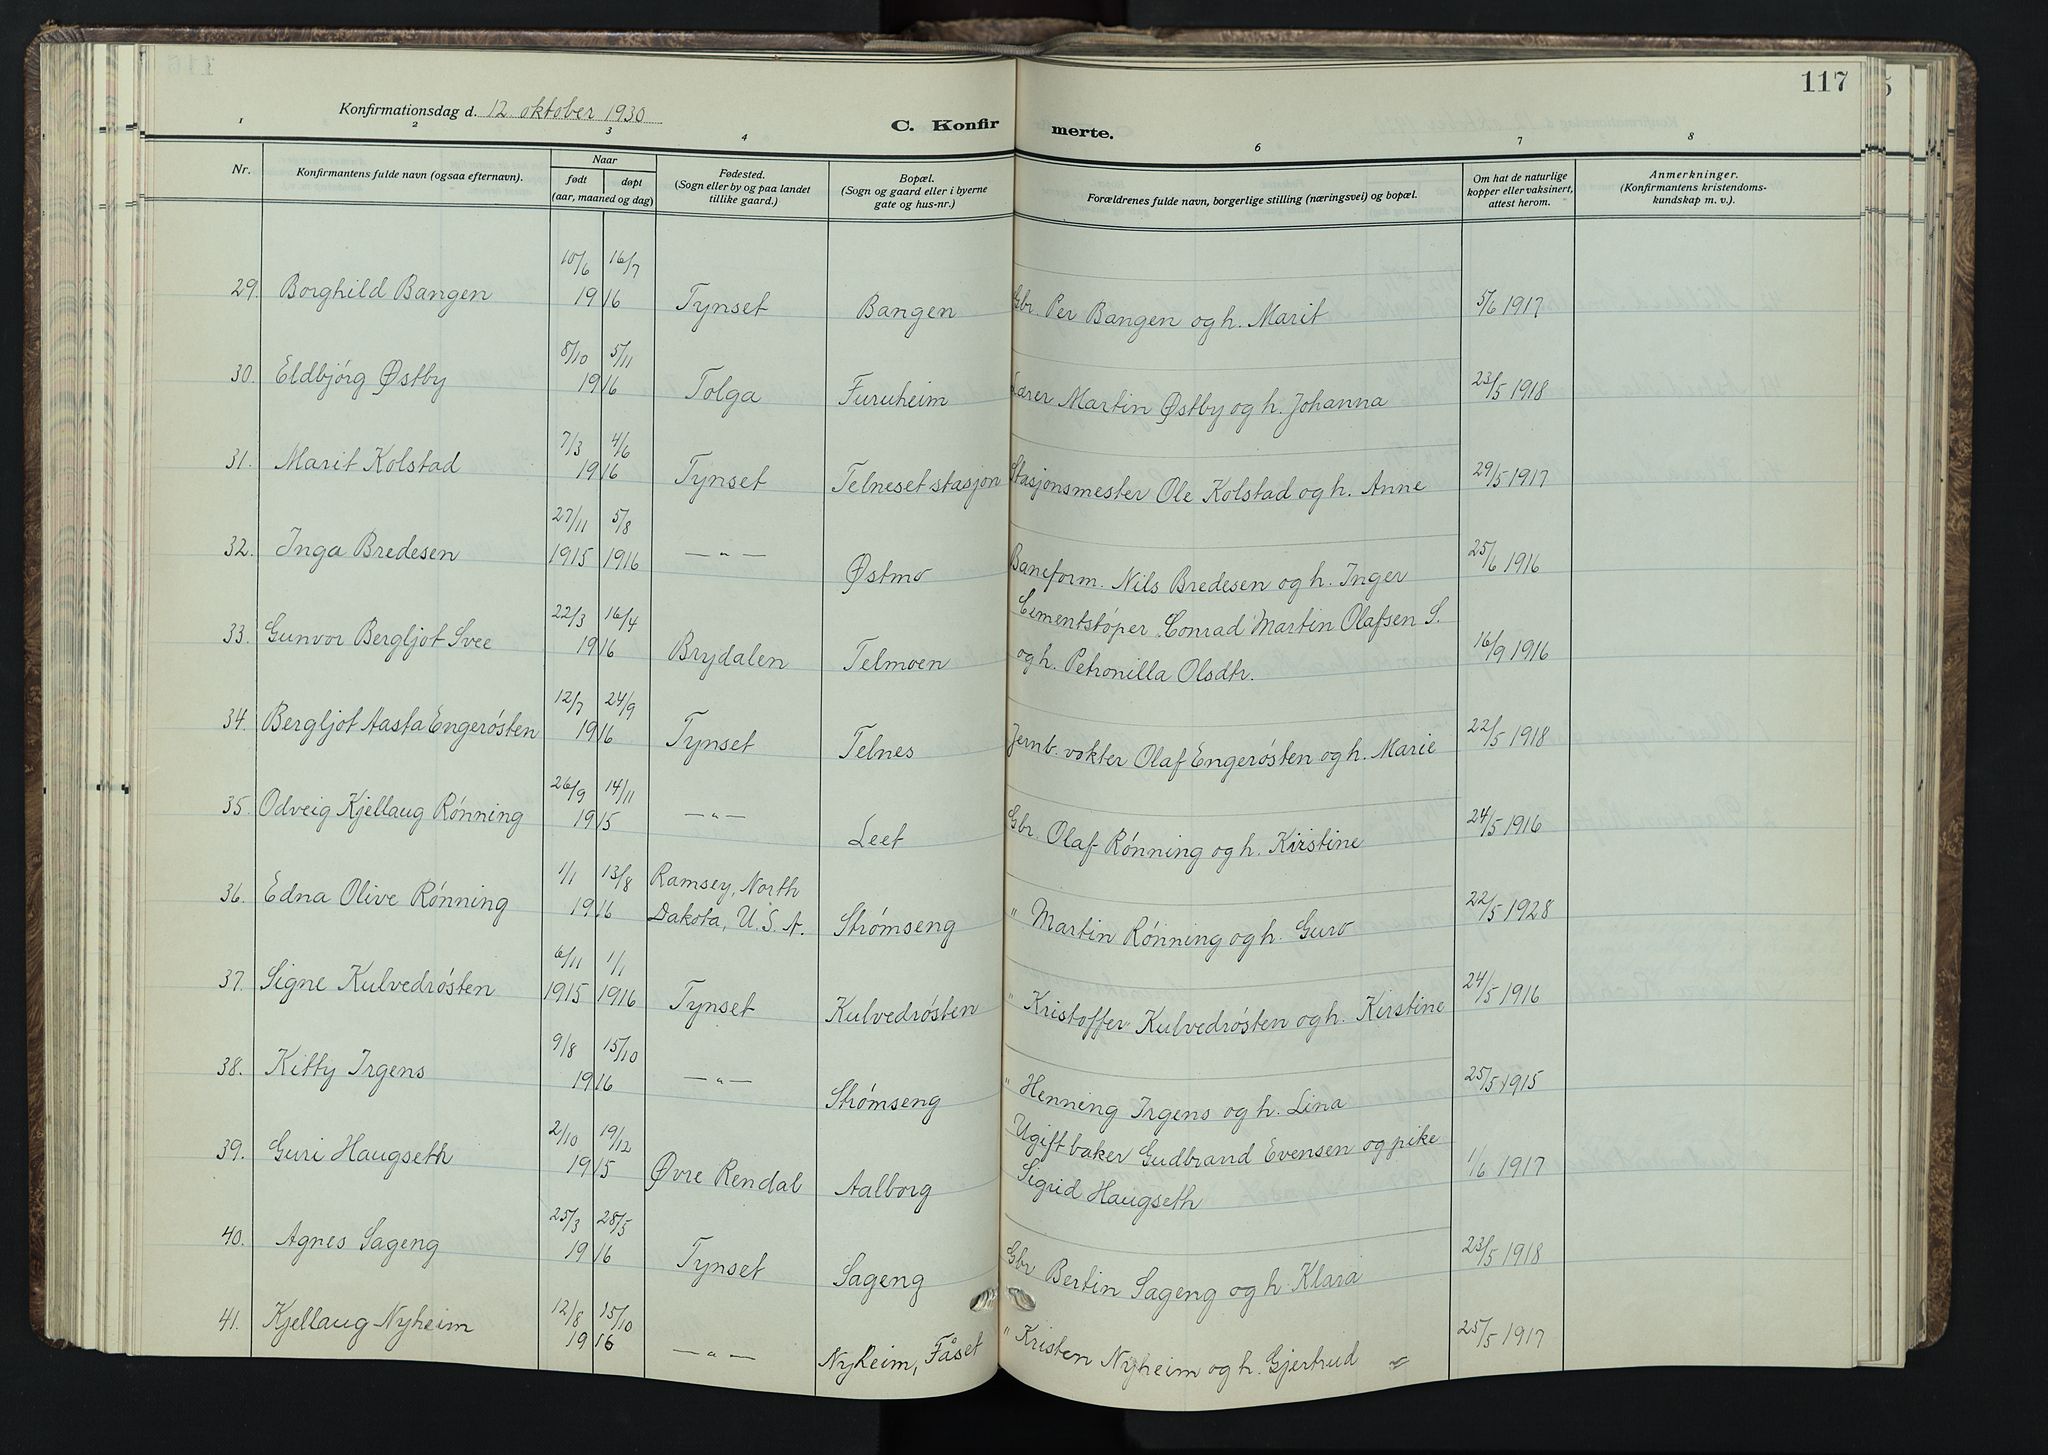 117
Konfirmationsdag d. 12. oktober 1930
C. Konfirmerte.
1 2 3 4 6 7 8
Nr. Konfirmantens fulde navn (ogsaa efternavn). Naar født døpt (aar, maaned og dag) Fødested. (Sogn eller by og paa landet tillike gaard.) Bopæl. (Sogn og gaard eller i byerne gate og hus-nr.) Forældrenes fulde navn, borgerlige stilling (næringsvei) og bopæl. Om hat de naturlige kopper eller vaksinert, attest herom. Anmerkninger. (Konfirmantens kristendoms-kundskap m. v.).
10/6 16/7
29. Borghild Bangen 1916 Tynset Bangen Gbr. Per Bangen og h. Marit 5/6 1917
8/10 5/11
30. Eldbjórg Østby 1916 Tolga Furuheim Lærer Martin Østby og h. Johanna 23/5 1918
7/3 4/6
31. Marit Kolstad 1916 Tynset Telneset stasjon Stasjonsmester Ole Kolstad og h. Anne 29/5 1917
27/11 5/8
32. Inga Bredesen 1915 1916 — " — Østmo Baneform. Nils Bredesen og h. Inger 25/6 1916
22/3 16/4 Cementstóper Conrad Martin Olafsen S.
33. Gunvor Bergljot Svee 1916 Brydalen Telmoen og h. Petronilla Olsdtr. 16/9 1916
12/7 24/9
34. Bergljot Aasta Engerósten 1916 Tynset Telnes Jernb. vokter Olaf Engerósten og h. Marie 22/5 1918
26/9 14/11
35. Odveig Kjellaug Rónning 1915 — " — Leet Gbr. Olaf Rónning og h. Kirstine 24/5 1916
1/1 13/8 Ramsey, North
36. Edna Olive Rónning 1916 Dakota, U.S.A. Strømseng " Martin Rónning og h. Guro 22/5 1928
6/11 1/1
37. Signe Kulvedrósten 1915 1916 Tynset Kulvedrósten " Kristoffer Kulvedrósten og h. Kirstine 24/5 1916
9/8 15/10
38. Kitty Irgens 1916 — " — Strømseng " Henning Irgens og h. Lina 25/5 1915
2/10 19/12 Ugift baker Gudbrand Evensen og pike
39. Guri Haugseth 1915 Øvre Rendal Aalborg Sigrid Haugseth 1/6 1917
25/3 28/5
40. Agnes Sageng 1916 Tynset Sageng Gbr Bertin Sageng og h. Klara 23/5 1918
12/8 15/10
41. Kjellaug Nyheim 1916 — " — Nyheim, Fåset " Kristen Nyheim og h. Gjertrud 25/5 1917